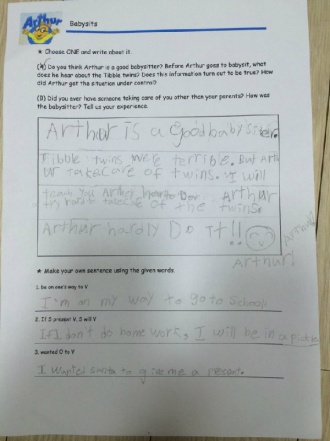 Arthur
Babysits
★ Choose ONE and write about it.
(A) Do you think Arthur is a good babysitter? Before Arthur goes to babysit, what
does he hear about the Tibble twins? Does this information turn out to be true? How
did Arthur get the situation under control?
(B) Did you ever have someone taking care of you other than your parents? How was
the babysitter? Tell us your experience.
Arthur is a good babysitter.
Tibble twins were terrible. But Arth
ur take care of twins. I will
teach you Arthur
Arthur
try hard take care of the twins.
Arthur hardly Do it!!
Arthur!
★ Make your own sentence using the given words.
1. be on one's way to V
I'm on my way to go to School.
2. If S present V, S will V
If I don't do home work, I will be in a
3. wanted O to V
I wanted santa to give me a